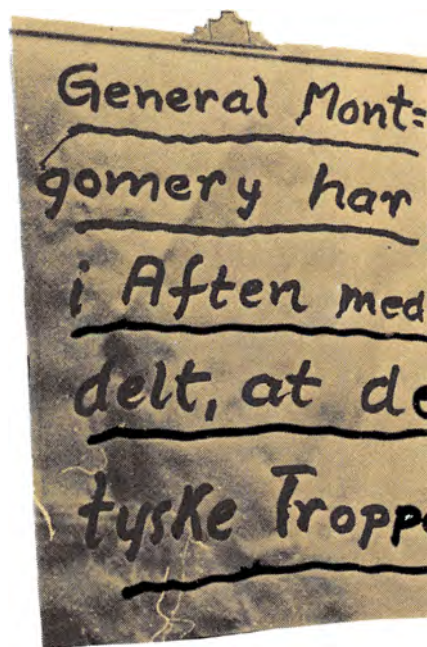 General Mont=
gomery har
i Aften med
delt, at de
tyske Troppe